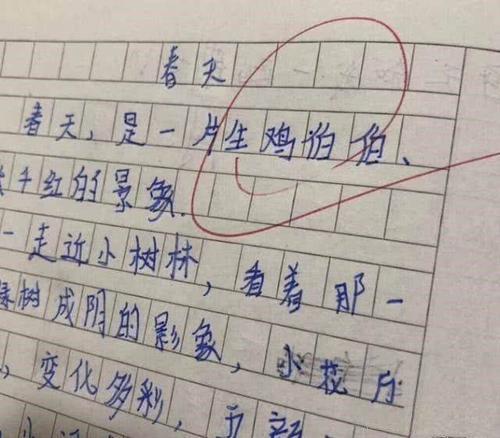 春天
春天，是一片生鸡泊伯、
千红的景象.
一走近小树林，看着那一
树成阴的影象，小花
，变化多彩，五颜